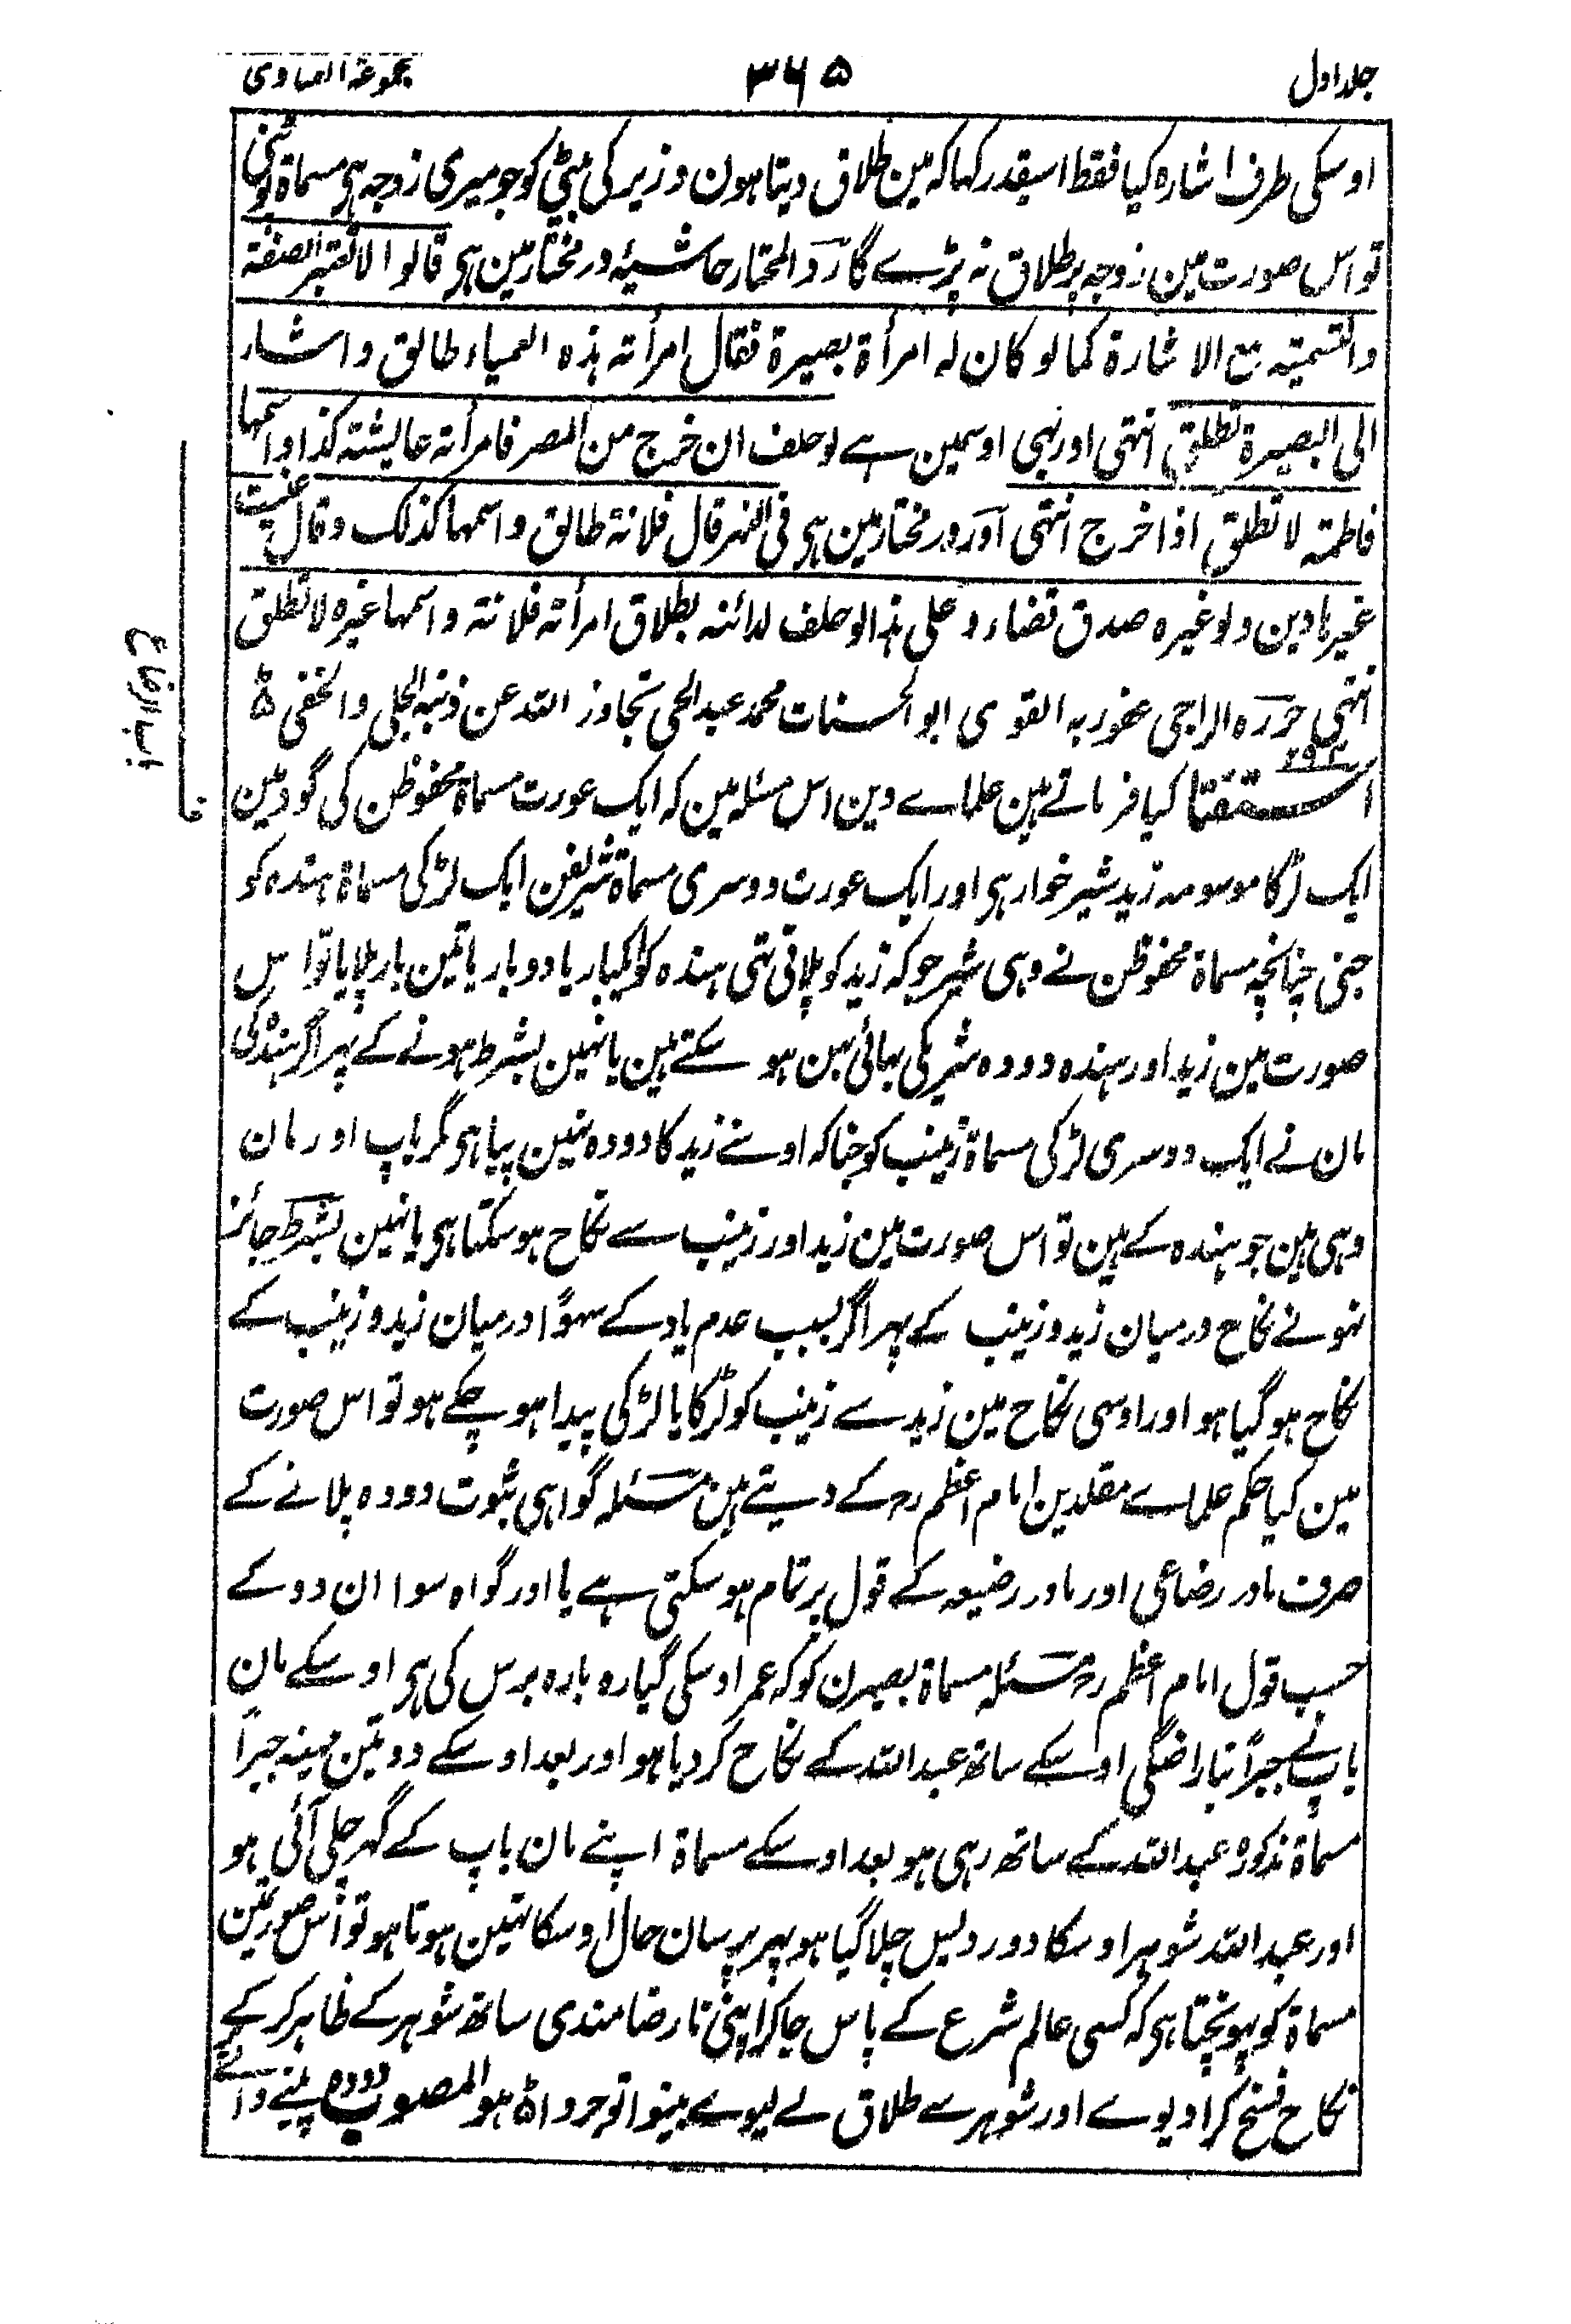 جلد اول
۳۶۵
مجموعۃ الفتاوی
اوسکی طرف اشارہ کیا فقط اسیقدر کہا کہ مین طلاق دیتا ہون وزیر کی بیٹی کو جو میری زوجہ ہی مسماۃ
تو اس صورت مین زوجہ پر طلاق نہ پڑے گا ردالمحتار حاشیۂ درمختار مین ہی قالوا لا تعتبر الصفۃ
والتسمیۃ مع الاشارۃ کما لو کان لہ امرأۃ بصیرۃ فقال امرأتہ ہذہ العمیاء طالق واشار
الی البصیرۃ تطلق انتہی اور بہی اوسمین ہے لو حلف ان خرج من المصر فامرأتہ عایشتہ کذا واسمہا
فاطمۃ لا تطلق اذا خرج انتہی اور درمختار مین ہی فی النہر قال فلانۃ طالق واسمہا کذلک وقال عنیت
غیرہا دین ولو غیرہ صدق قضاء وعلی ہذا لو حلف لدائنہ بطلاق امرأتہ فلانۃ واسمہا غیرہ لا تطلق
انتہی حررہ الراجی عفو ربہ القوی ابو الحسنات محمد عبدالحی تجاوز اللہ عن ذنبہ الجلی والخفی ۵
استفتا کیا فرماتے ہین علماے دین اس مسئلہ مین کہ ایک عورت مسماۃ محفوظن کی گود مین
ایک لڑکا موسومہ زید شیر خوار ہی اور ایک عورت دوسری مسماۃ شریفن ایک لڑکی مسماۃ ہندہ کو
جنی چنانچہ مسماۃ محفوظن نے وہی شیر جو کہ زید کو پلاتی تہی ہندہ کو ایکبار یا دو بار یا تین بار پلایا تو اس
صورت مین زید اور ہندہ دودہ شریکی بہائی بہن ہو سکتے ہین یا نہین بشرط ہونے کے پہر اگر ہندہ کی
مان نے ایک دوسری لڑکی مسماۃ زینب کو جنا کہ اوسنے زید کا دودہ نہین پیا ہی مگر باپ اور مان
وہی ہین جو ہندہ کے ہین تو اس صورت مین زید اور زینب سے نکاح ہو سکتا ہی یا نہین بشرط جائز
نہونے نکاح درمیان زید و زینب کے پہر اگر بسبب عدم یاد کے سہوًا درمیان زید و زینب کے
نکاح ہو گیا ہو اور اوسی نکاح مین زید سے زینب کو لڑکا یا لڑکی پیدا ہو چکے ہو تو اس صورت
مین کیا حکم علماے مقلدین امام اعظم رح کے دیتے ہین مسئلہ گواہی ثبوت دودہ پلانے کے
صرف مادر رضاعی اور مادر رضیعہ کے قول پر تمام ہو سکتی ہے یا اور گواہ سوا ان دو کے
حسب قول امام اعظم رح مسئلہ مسماۃ بصیرن کو کہ عمر اوسکی گیارہ بارہ برس کی ہی اوسکے مان
باپ نے جبرًا بناراضگی اوسکے ساتھ عبداللہ کے نکاح کر دیا ہو اور بعد اوسکے دو تین مہینہ جبرًا
مسماۃ مذکورہ عبداللہ کے ساتھ رہی ہو بعد اوسکے مسماۃ اپنے مان باپ کے گہر چلی آئی ہو
اور عبداللہ شوہر اوسکا دور دیس چلا گیا ہو پہر پرسان حال اوسکا نہین ہوتا ہو تو اس صورتمین
مسماۃ کو پہونچتا ہی کہ کسی عالم شرع کے پاس جا کر اپنی نارضامندی ساتھ شوہر کے ظاہر کر کے
نکاح فسخ کرا دیوے اور شوہر سے طلاق لے لیوے بینوا توجروا ۵ ہو المصوب دودہ پینے والے
باب الرضاع